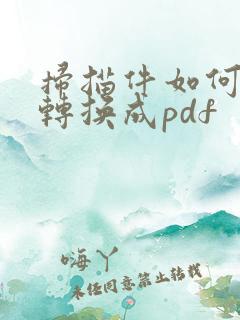 掃描件如何
轉換成pdf
嗨丫
未经同意禁止转载